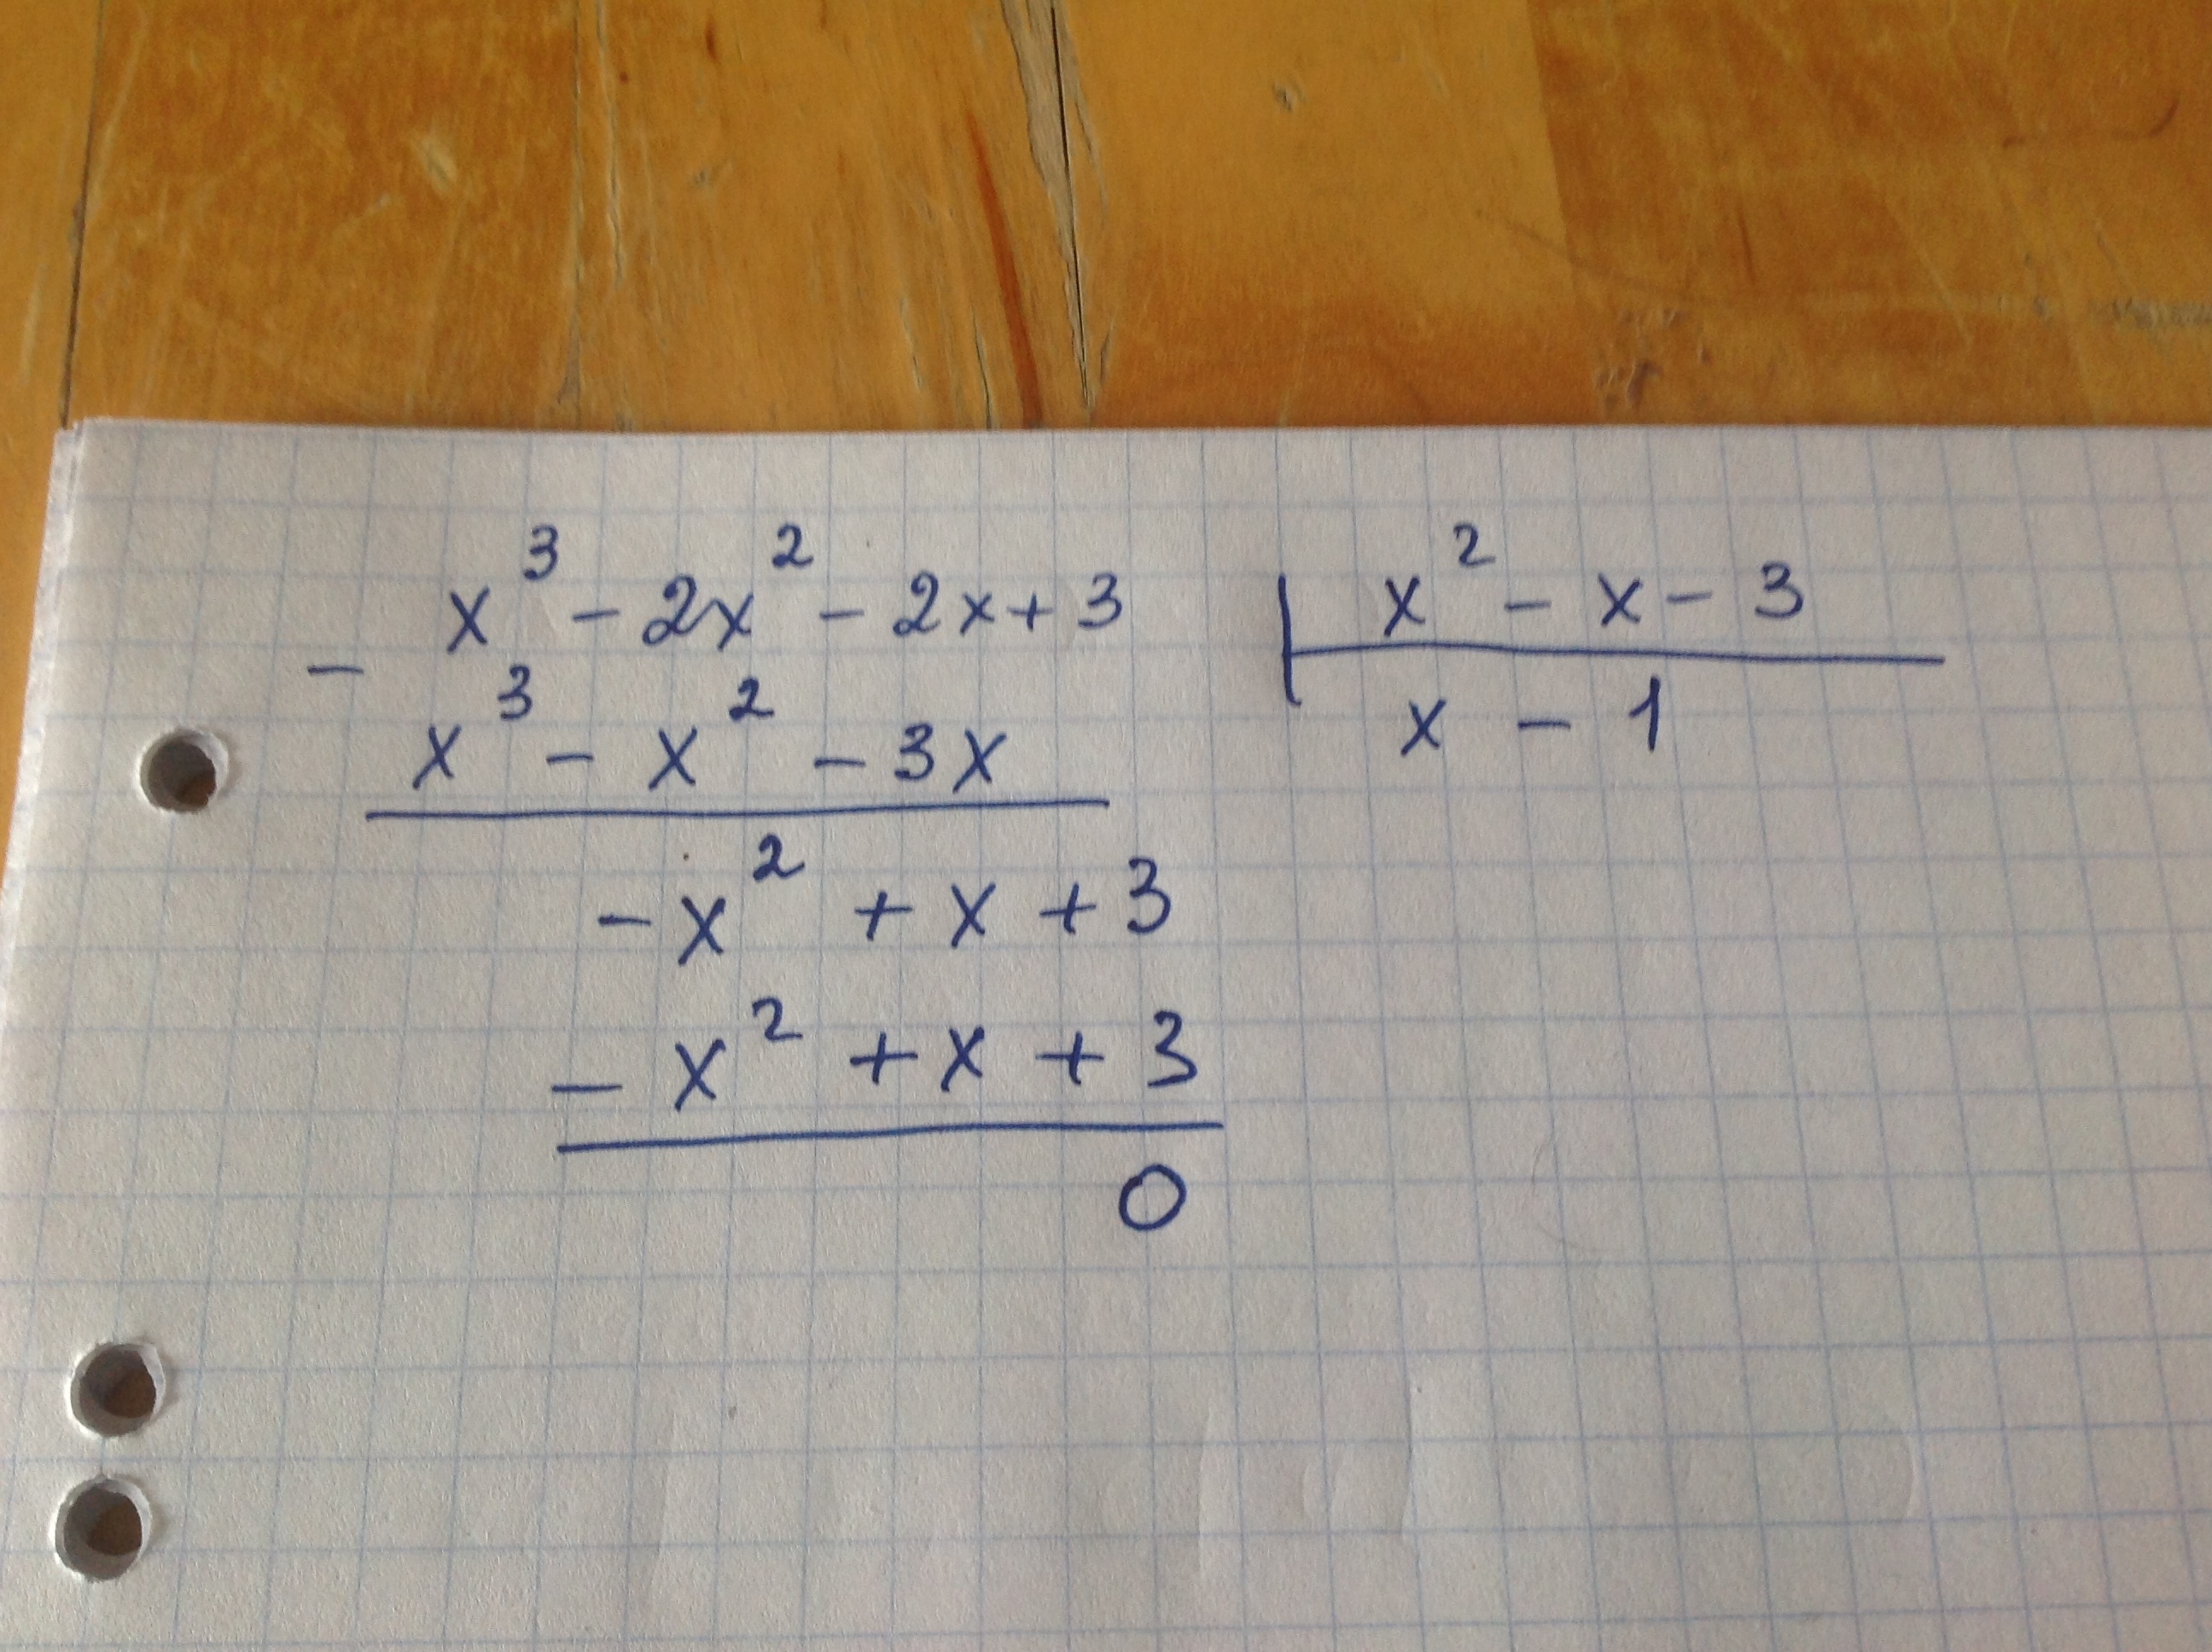 x³ - 2x² - 2x + 3 | x² - x - 3
-
x³ - x² - 3x x - 1
-x² + x + 3
-x² + x + 3
0